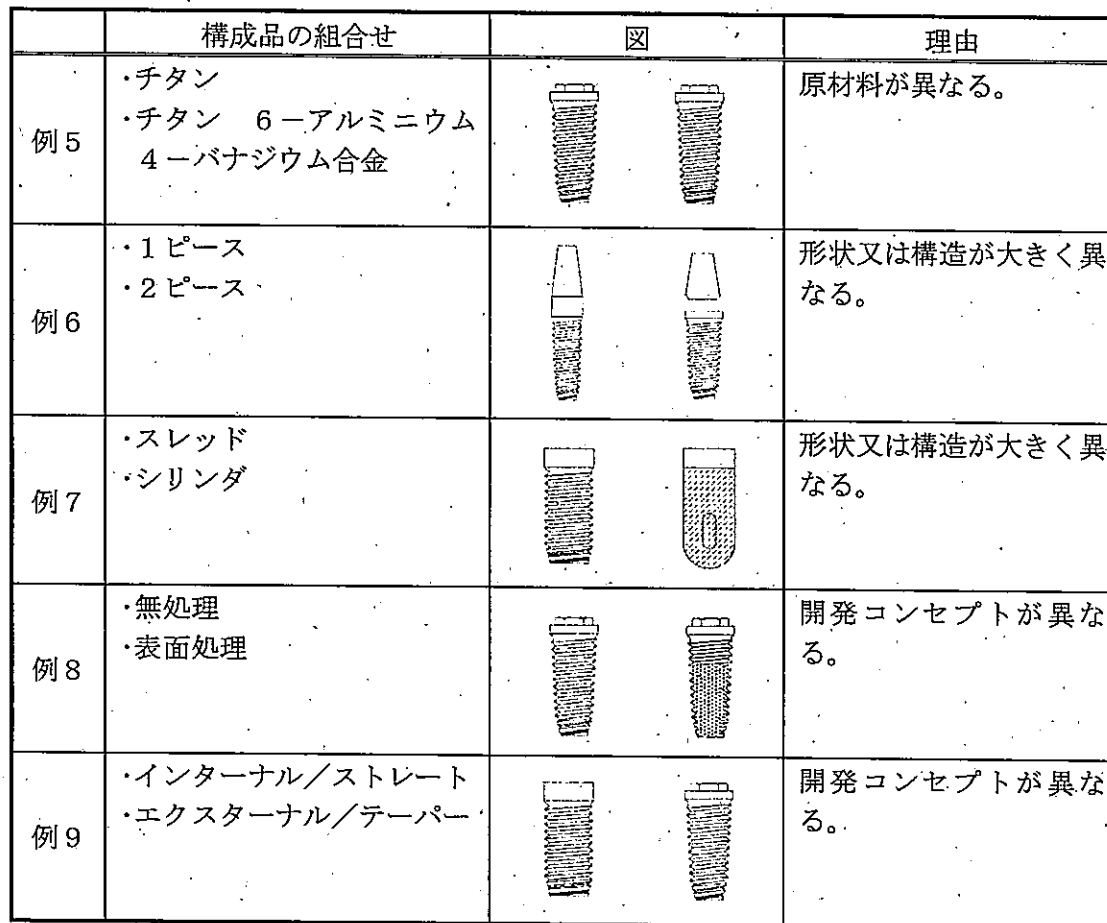 構成品の組合せ 図 理由
例5
・チタン
・チタン 6-アルミニウム
4-バナジウム合金
原材料が異なる。
例6
・1ピース
・2ピース
形状又は構造が大きく異
なる。
例7
・スレッド
・シリンダ
形状又は構造が大きく異
なる。
例8
・無処理
・表面処理
開発コンセプトが異な
る。
例9
・インターナル/ストレート
・エクスターナル/テーパー
開発コンセプトが異な
る。